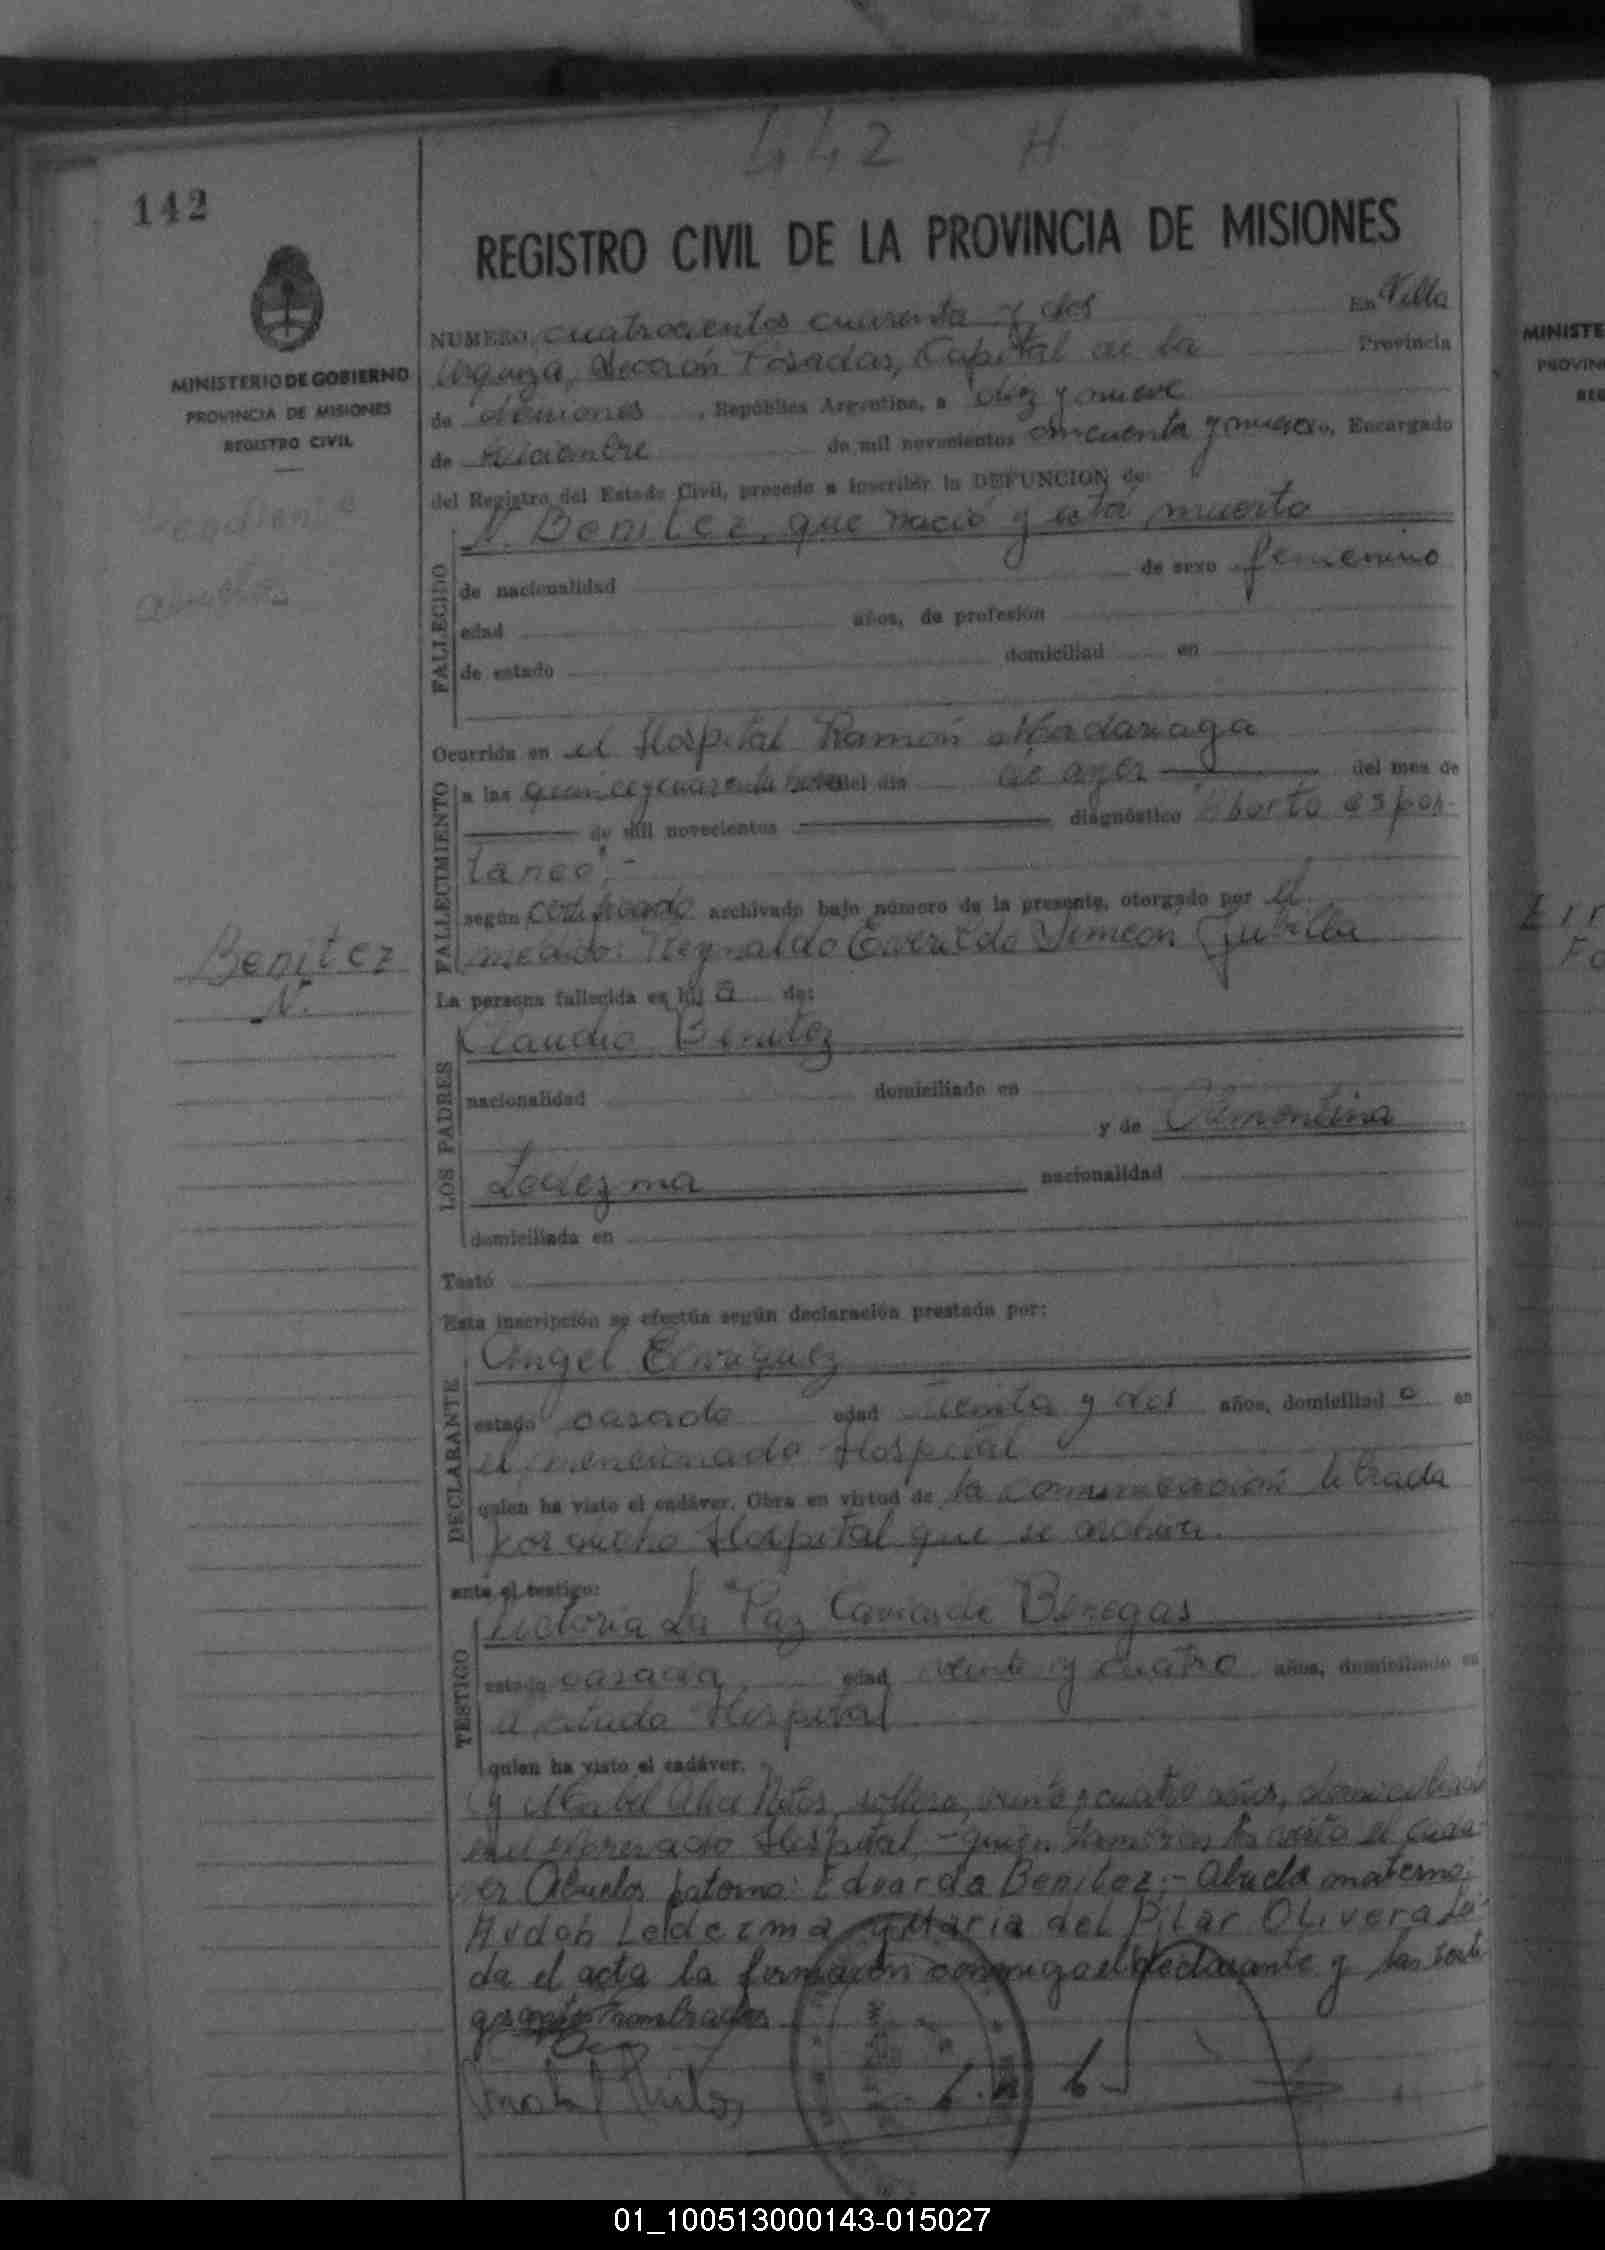 442 H
142
REGISTRO CIVIL DE LA PROVINCIA DE MISIONES
MINISTERIO DE GOBIERNO
PROVINCIA DE MISIONES
REGISTRO CIVIL
NUMERO cuatrocientos cuarenta y dos En Villa
Urquiza, Sección Posadas, Capital de la Provincia
de Misiones, República Argentina, a diez y nueve
de diciembre de mil novecientos cincuenta y nueve, Encargado
del Registro del Estado Civil, procedo a inscribir la DEFUNCION de:
N. Benitez, que nació y está muerto
FALLECIDO
de nacionalidad de sexo femenino
edad años, de profesión
de estado domiciliad en
Ocurrida en el Hospital Ramón Madariaga
FALLECIMIENTO
a las quince y cuarenta horas del día de ayer del mes de
de mil novecientos diagnóstico "Aborto espon-
taneo".-
según certificado archivado bajo número de la presente, otorgado por el
médico: Reynaldo Everildo Simeon
Benitez
N.
La persona fallecida es hij a de:
Claudio Benitez
LOS PADRES
nacionalidad domiciliado en
y de Clementina
Ledezma nacionalidad
domiciliada en
Testó
Esta inscripción se efectúa según declaración prestada por:
Angel Enriquez
DECLARANTE
estado casado edad treinta y dos años, domiciliad o en
el mencionado Hospital
quien ha visto el cadáver. Obra en virtud de la comunicación librada
por dicho Hospital que se archiva.
ante el testigo:
Victoria La Paz de Benegas
TESTIGO
estado casada edad veinte y cuatro años, domiciliado en
el citado Hospital
quien ha visto el cadáver.
y Mabel Alice soltera, veinte y cuatro años, domiciliada
en el Hospital, - quien también ha visto el cadá-
er Abuelos paterno: Eduarda Benitez.- Abuelo materno:
Ledezma y Maria del Pilar Olivera Leí-
da el acta la firmaron conmigo el declarante y las testi-
gos nombrados
MINISTE
PROVIN
REG
01_100513000143-015027